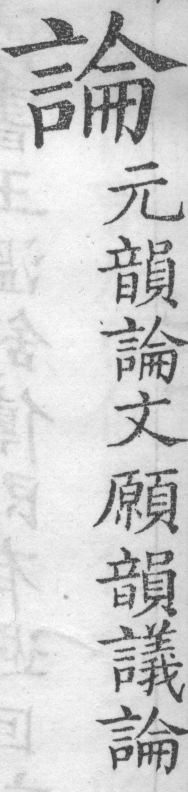 論
元韻論文願韻議論